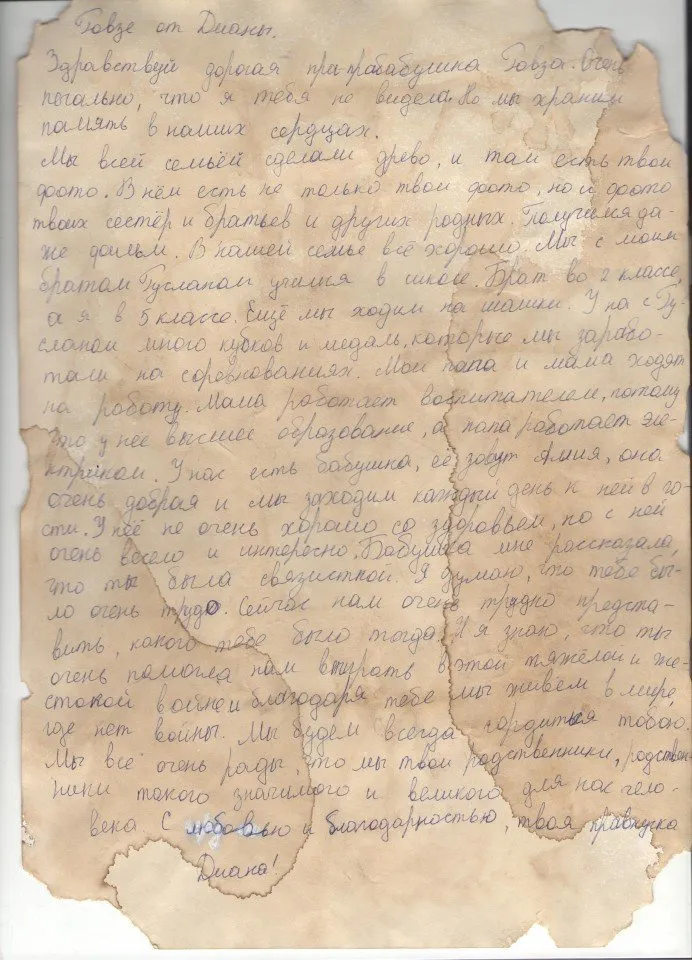 Говзе от Дианы.
Здравствуй дорогая пра-прабабушка Говза. Очень
печально, что я тебя не видела. Но мы храним
память в наших сердцах.
Мы всей семьёй сделали древо, и там есть твои
фото. В нём есть не только твои фото, но и фото
твоих сестёр и братьев и других родных. Получился да-
же фильм. В нашей семье всё хорошо. Мы с моим
братом Гусланом учимся в школе. Брат во 2 классе,
а я в 5 классе. Ещё мы ходим на шашки. У на с Гу-
сланом много кубков и медаль, которые мы зарабо-
тали на соревнованиях. Мои папа и мама ходят
на работу. Мама работает воспитателем, потому
что у неё высшее образование, а папа работает эле-
ктриком. У нас есть бабушка, её зовут Амия, она
очень добрая и мы заходим каждый день к ней в го-
сти. У неё не очень хорошо со здоровьем, но с ней
очень весело и интересно. Бабушка мне рассказала,
что ты была связисткой. Я думаю, что тебе бы-
ло очень трудо. Сейчас нам очень трудно предста-
вить, какого тебе было тогда. И я знаю, что ты
очень помогла нам выиграть в этой тяжёлой и же-
стокой войне и благодаря тебе мы живём в мире,
где нет войны. Мы будем всегда гордиться тобою.
Мы все очень рады, что мы твои родственники, родствен-
ники такого значимого и великого для нас чело-
века. С любовью и благодарностью, твоя правнучка
Диана!